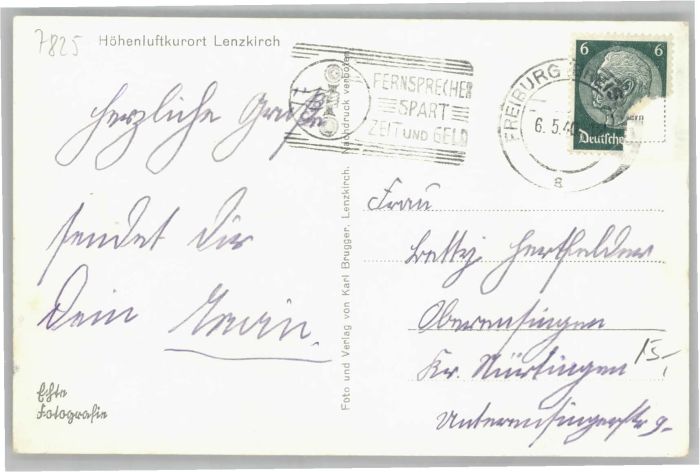 7825
Höhenluftkurort Lenzkirch
herzliche Grüße
sendet Dir
Dein Erwin.
Echte
Fotografie
Foto und Verlag von Karl Brugger, Lenzkirch. Nachdruck verboten
FERNSPRECHER
SPART
ZEIT UND GELD
FREIBURG
6.5.40
a
6 6
Deutsche
Frau
Betty Hertfelder
Oberensingen
Kr. Nürtingen
15,-
Unterensingerstr 9.